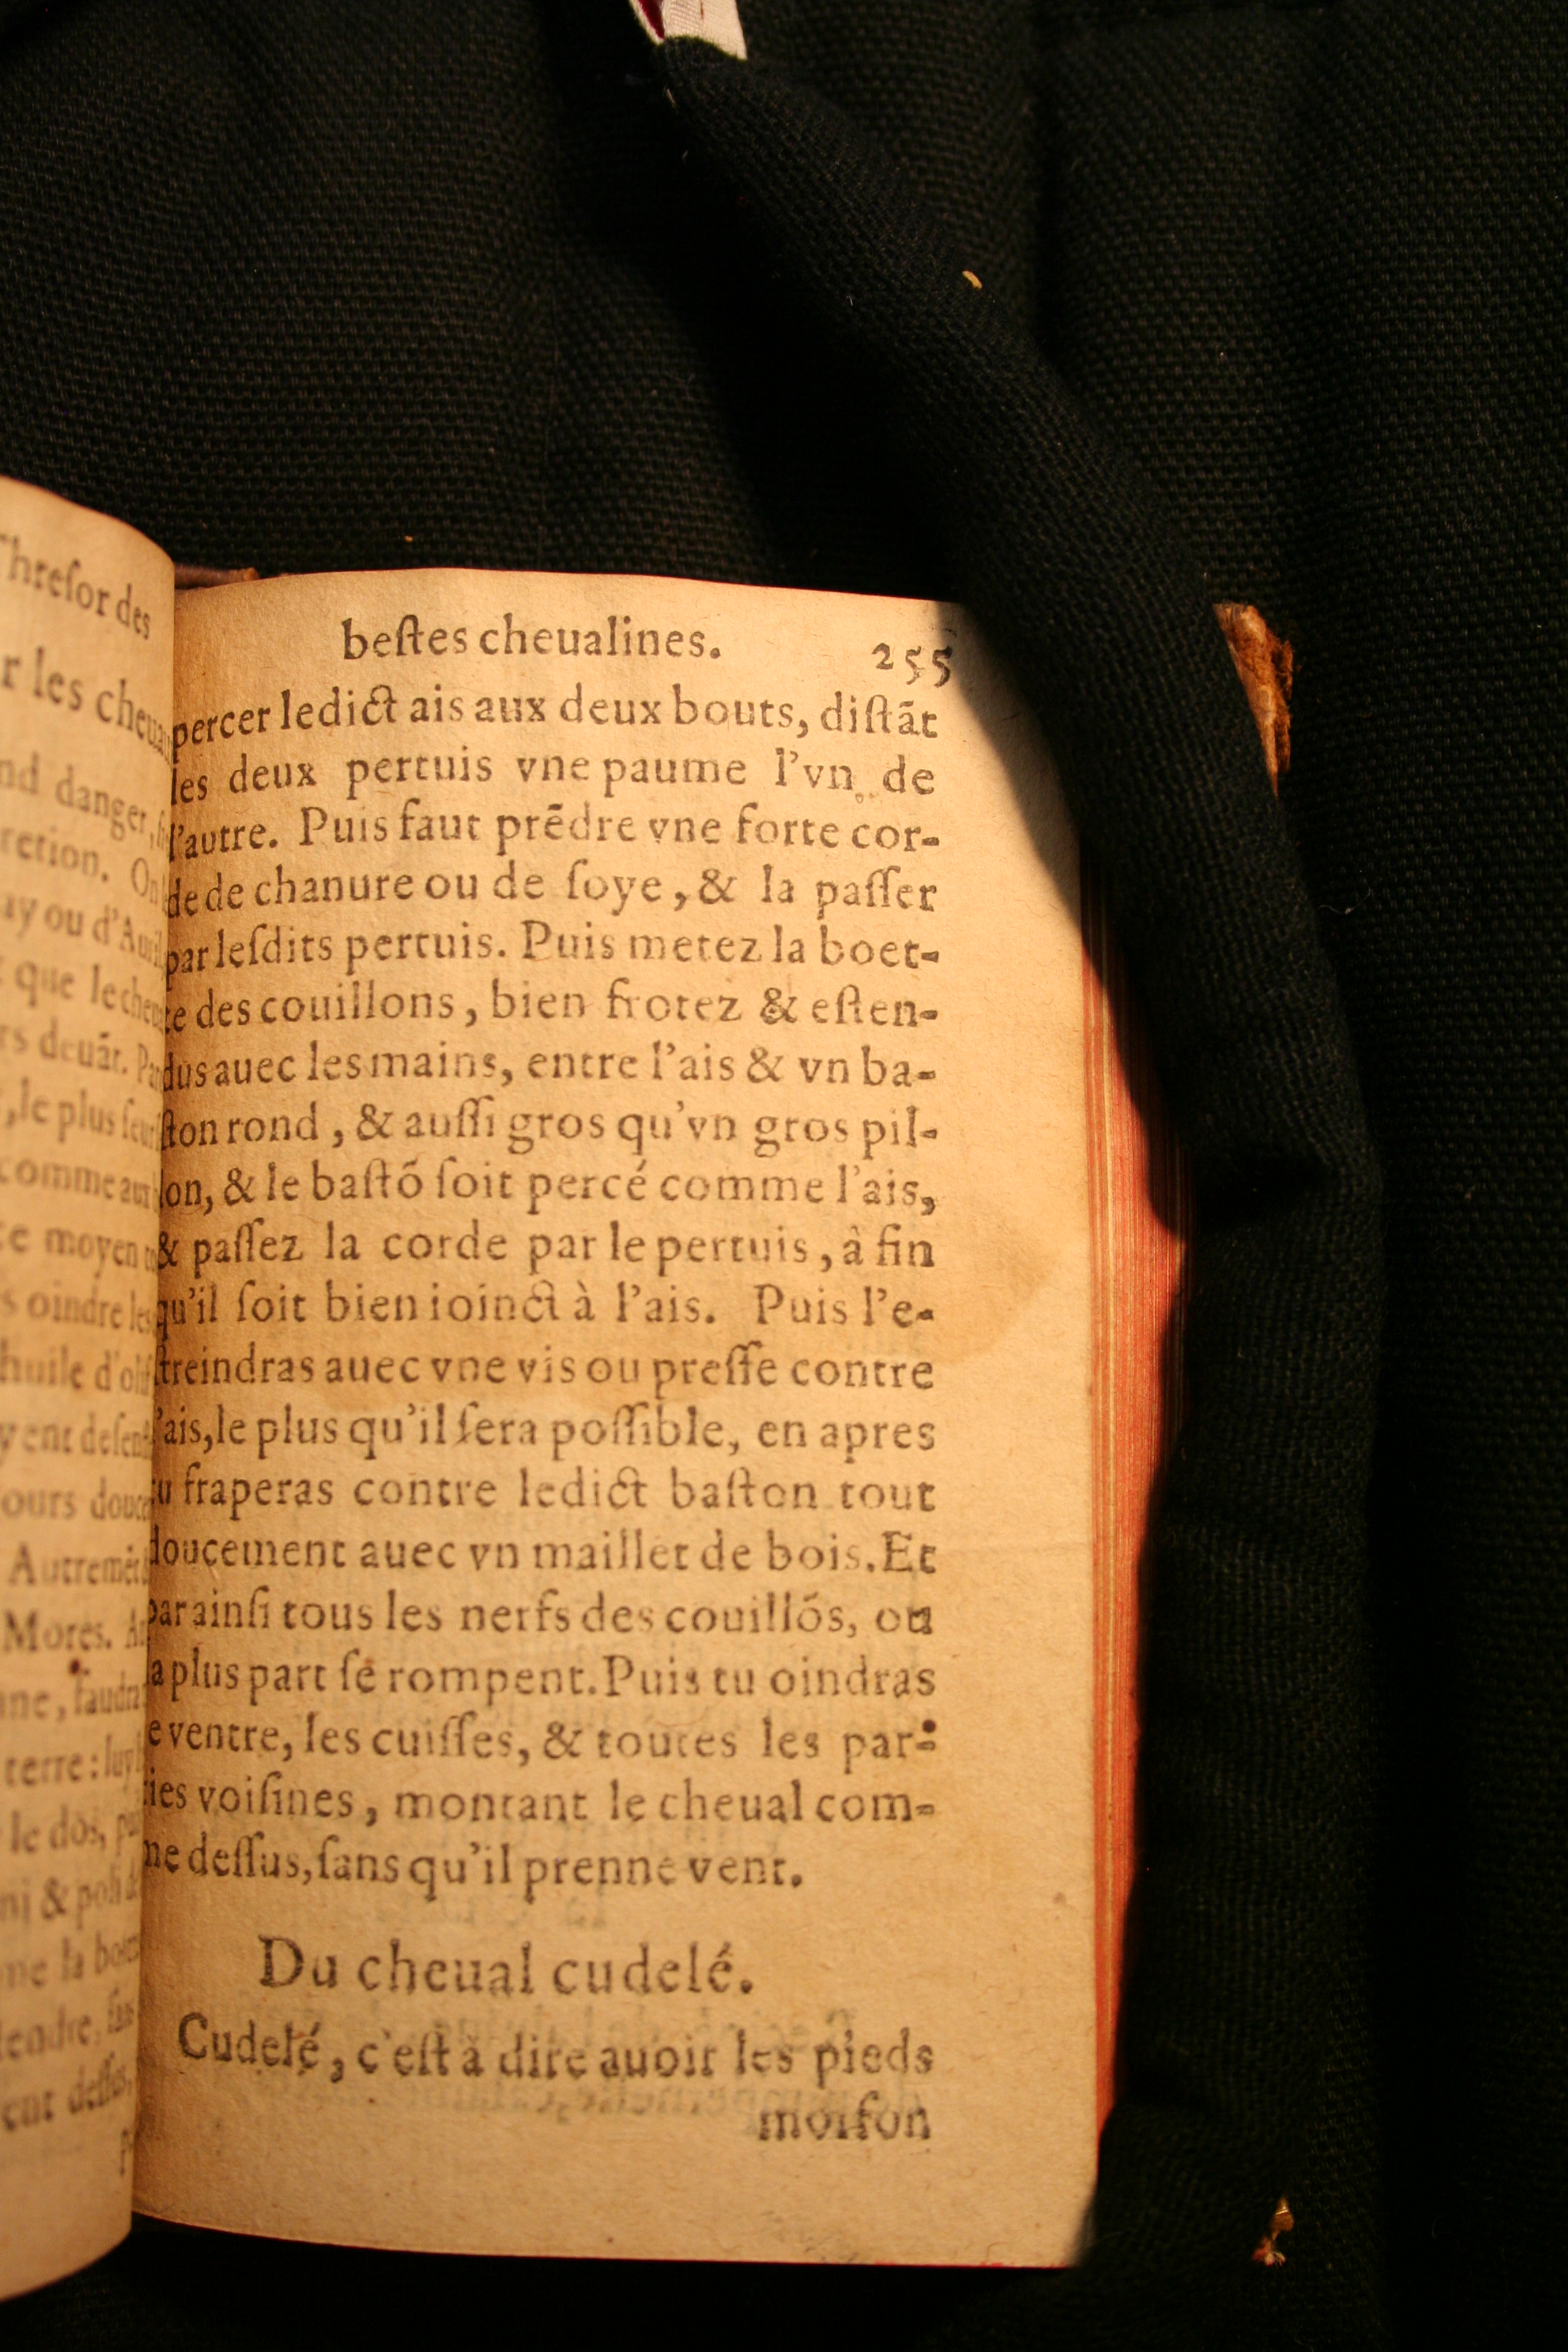 Threſor des
r les cheua
nd danger,
retion. On
ay ou d'Au
que le che
rs deuāt. Pa
,le plus ſeu
comme aux
ce moyen
s oindre les
huile d'oli
yent deſen
ours douce
Autremēt
Mores.
ne, faudra
terre: luy
le dos,
ni & poli
me la boet
endre,
ent deſſus,
beſtes cheualines. 255
percer ledict ais aux deux bouts, diſtāt
les deux pertuis vne paume l'vn de
l'autre. Puis faut prēdre vne forte cor-
de de chanure ou de ſoye, & la paſſer
par leſdits pertuis. Puis metez la boet-
te des couillons, bien frotez & eſten-
dus auec les mains, entre l'ais & vn ba-
ſton rond, & auſſi gros qu'vn gros pil-
lon, & le baſtō ſoit percé comme l'ais,
& paſſez la corde par le pertuis, à fin
qu'il ſoit bien ioinct à l'ais. Puis l'e-
ſtreindras auec vne vis ou preſſe contre
l'ais, le plus qu'il ſera poſſible, en apres
tu fraperas contre ledict baſton tout
doucement auec vn maillet de bois. Et
par ainſi tous les nerfs des couillōs, ou
la plus part ſe rompent. Puis tu oindras
le ventre, les cuiſſes, & toutes les par-
ties voiſines, montant le cheual com-
me deſſus, ſans qu'il prenne vent.
Du cheual cudelé.
Cudelé, c'eſt à dire auoir les pieds
moiſon